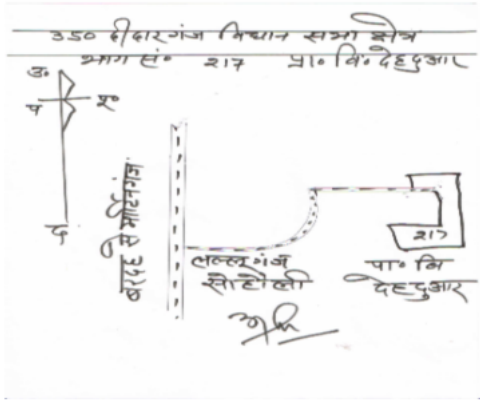 350 दीदारगंज विधान सभा क्षेत्र
भाग सं० 217 प्रा० वि० देहदुआर
उ०
प पू०
द
बरदह से मार्टिनगंज
लल्लूगंज
सोहौली
217
पा० वि
देहदुआर